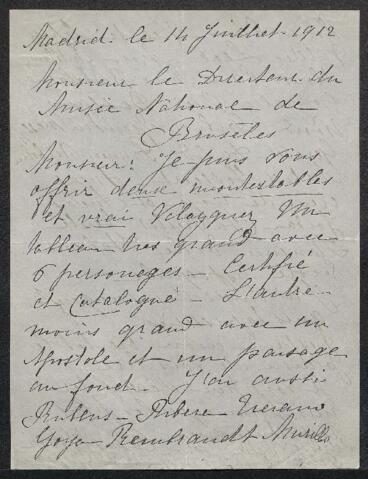 Madrid le 14 Juillet 1912
Monsieur le Directeur du
Musée National de
Bruseles
Monsieur: Je puis vous
offrir deux incontestables
et vrai Velazquez Un
tableau tres grand avec
6 personeges - Certifié
et Catalogué - L'autre
moins grand avec un
Apostole et un paisage
au fond. J'ai aussi
Rubens - Ribera
Goya - Rembrandt Murillo